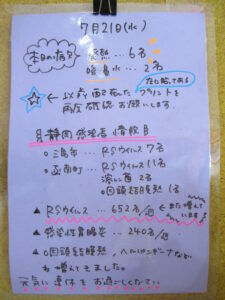 7月21日(水)
本日の病欠
発熱…6名
鼻水…2名
左に貼ってある
以前配布したプリントを
再度確認お願いします。
静岡 発生者情報
○三島市…RSウイルス7名
○函南町…RSウイルス11名
溶連菌2名
咽頭結膜熱1名
▲RSウイルス…652名/週
また増えています
▲感染性胃腸炎…240名/週
▲咽頭結膜熱、ヘルパンギーナなど
も増えてきました。
元気に連休をお過ごしください